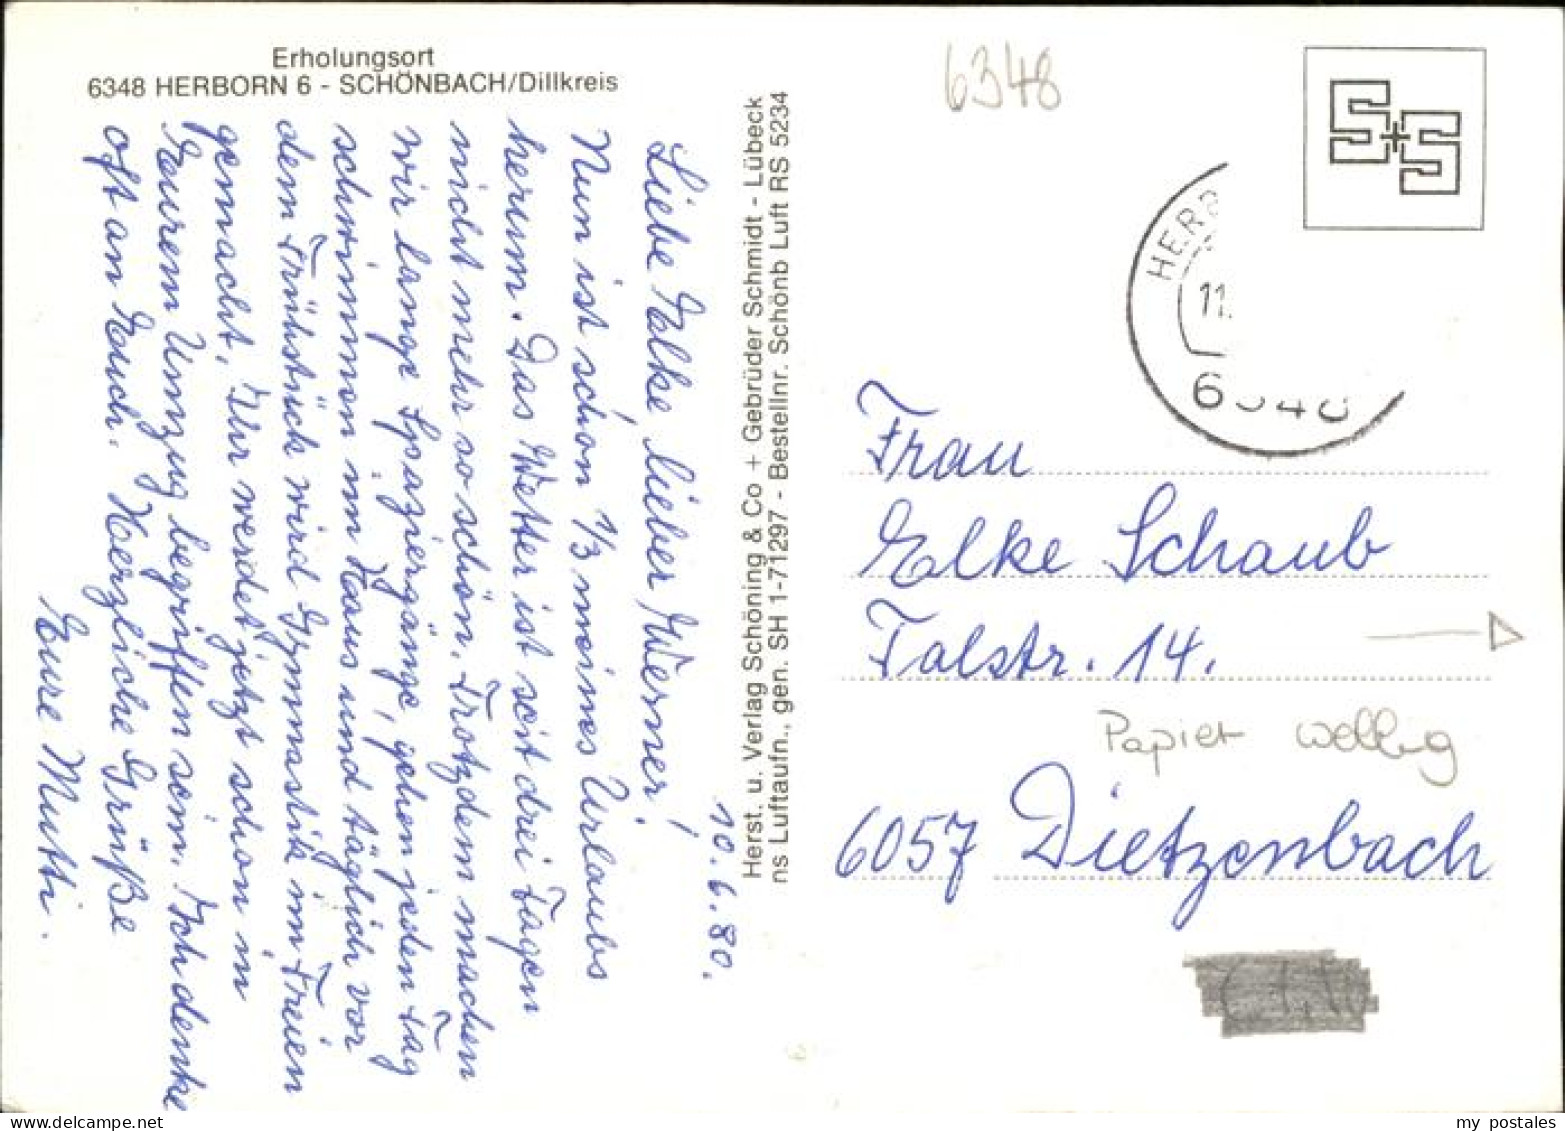 Erholungsort
6348 HERBORN 6 - SCHÖNBACH/Dillkreis
10.6.80.
Liebe Elke, lieber Werner!
Nun ist schon 1/3 meines Urlaubs
herum. Das Wetter ist seit drei Tagen
nicht mehr so schön. Trotzdem machen
wir lange Spaziergänge, gehen jeden Tag
schwimmen im Haus und täglich vor
dem Frühstück wird Gymnastik im Freien
gemacht. Ihr werdet jetzt schon in
Eurem Umzug begriffen sein. Ich denke
oft an Euch. Herzliche Grüße
Eure Mutti.
Herst. u. Verlag Schöning & Co + Gebrüder Schmidt - Lübeck
ns Luftaufn., gen. SH 1-71297 - Bestellnr. Schönb Luft RS 5234
6348
S+S
HERB
11.
6348
Frau
Elke Schaub
Talstr. 14.
Papier wellig
6057 Dietzenbach
my postales